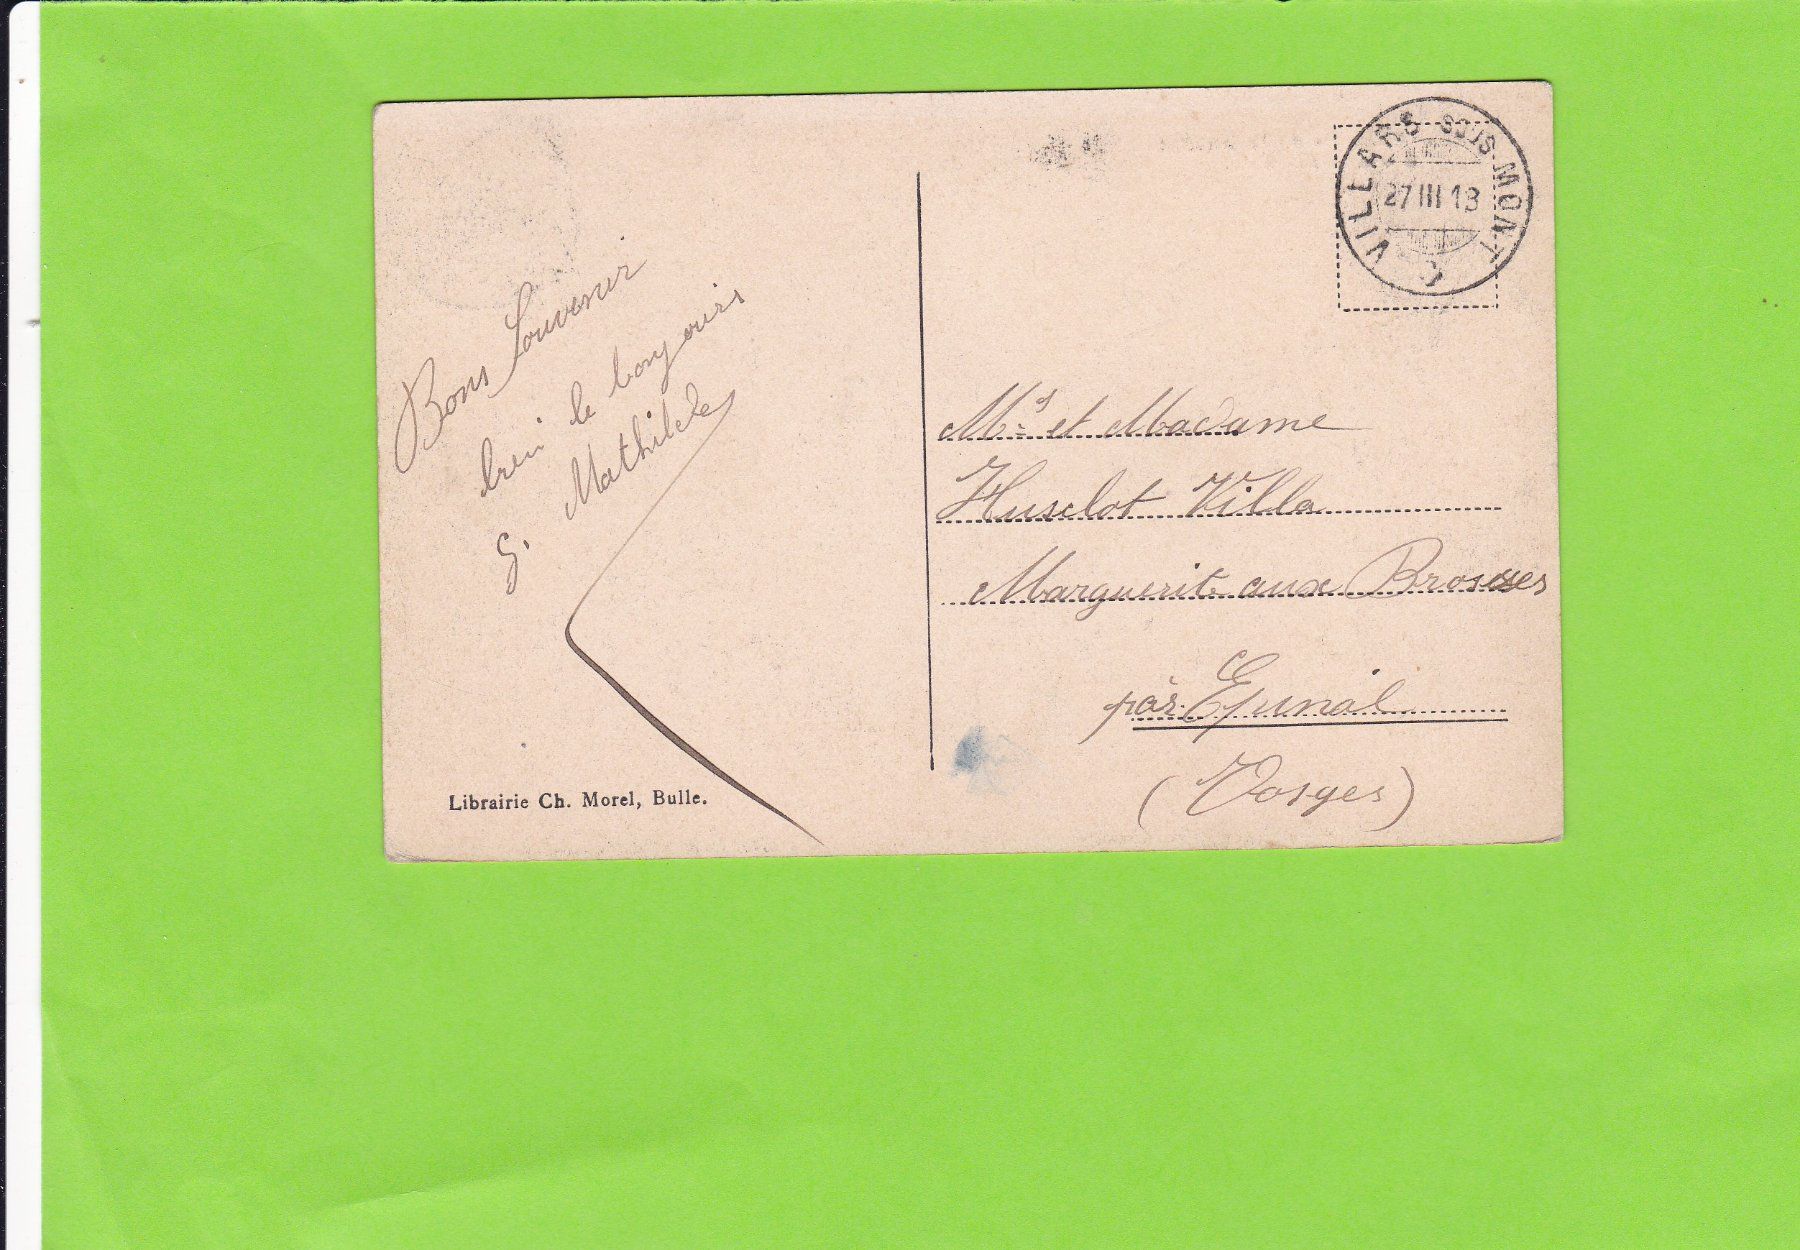 Bons Souvenir
bien le bonjours
Mathilde
G.
Librairie Ch. Morel, Bulle.
VILLARS SOUS MONT
27 III 13
Mr et Madame
Huselot Villa
Marguerite aux Brosses
par Epinal
(Vosges)